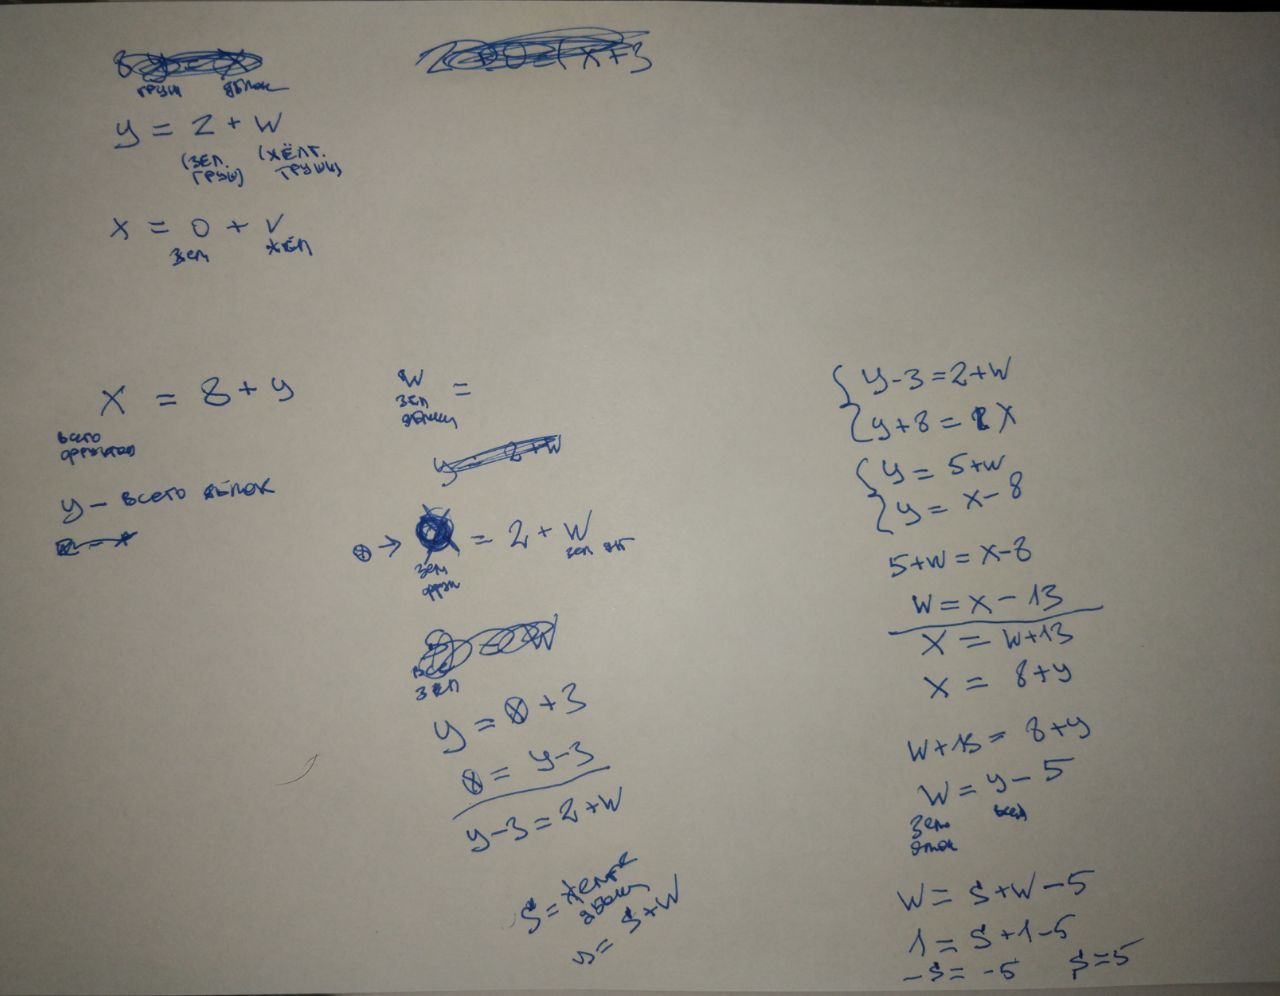 груш яблок
y = 2 + W
(зел. груш) (жёлт. груши)
x = 0 + V
зел жёл
x = 8 + y
всего фруктов
y – всего яблок
W =
зел яблоки
⊗ → = 2 + W
зел фрук зел яб
все зел
y = ⊗ + 3
⊗ = y – 3
y – 3 = 2 + W
S = желтые яблоки
y = S + W
y – 3 = 2 + W
y + 8 = X
y = 5 + W
y = x – 8
5 + W = x – 8
W = x – 13
x = W + 13
x = 8 + y
W + 13 = 8 + y
W = y – 5
зел яблок всех
W = S + W – 5
1 = S + 1 – 5
– S = – 5 S = 5